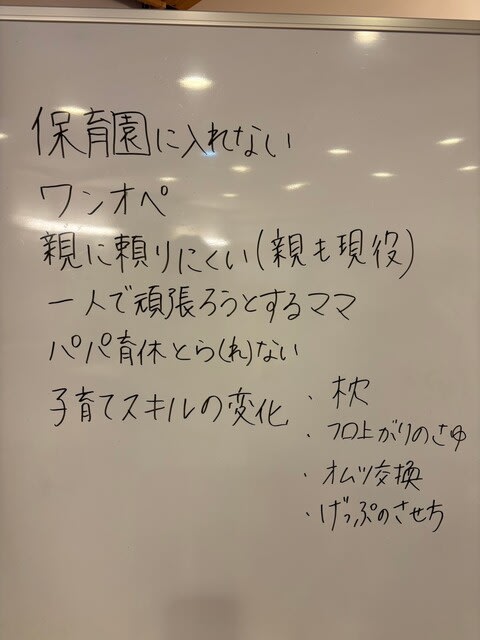 保育園に入れない
ワンオペ
親に頼りにくい(親も現役)
一人で頑張ろうとするママ
パパ育休とら(れ)ない
子育てスキルの変化
・枕
・フロ上がりのさゆ
・オムツ交換
・げっぷのさせ方